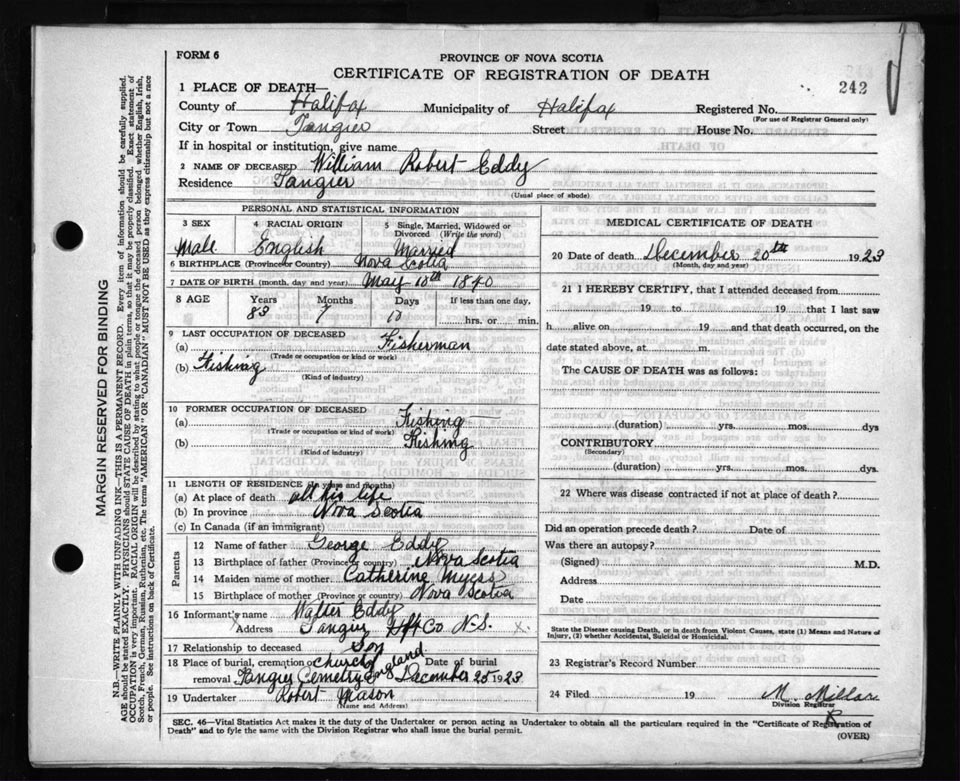 FORM 6
PROVINCE OF NOVA SCOTIA
CERTIFICATE OF REGISTRATION OF DEATH
242
1 PLACE OF DEATH—
County of Halifax Municipality of Halifax Registered No.
(For use of Registrar General only)
City or Town Tangier Street House No.
If in hospital or institution, give name
2 NAME OF DECEASED William Robert Eddy
Residence Tangier
(Usual place of abode)
PERSONAL AND STATISTICAL INFORMATION
3 SEX 4 RACIAL ORIGIN 5 Single, Married, Widowed or Divorced (Write the word)
Male English Married
6 BIRTHPLACE (Province or Country) Nova Scotia
7 DATE OF BIRTH (month, day and year) May 10th 1840
8 AGE Years Months Days If less than one day,
83 7 10 hrs. or min.
9 LAST OCCUPATION OF DECEASED
(a) Fisherman
(Trade or occupation or kind of work)
(b) Fishing
(Kind of industry)
10 FORMER OCCUPATION OF DECEASED
(a) Fishing
(Trade or occupation or kind of work)
(b) Fishing
(Kind of industry)
11 LENGTH OF RESIDENCE (in years and months)
(a) At place of death all his life
(b) In province Nova Scotia
(c) In Canada (if an immigrant)
Parents
12 Name of father George Eddy
13 Birthplace of father (Province or country) Nova Scotia
14 Maiden name of mother Catherine Myers
15 Birthplace of mother (Province or country) Nova Scotia
16 Informant's name Walter Eddy
Address Tangier Hfx Co N.S. x.
17 Relationship to deceased Son
18 Place of burial, cremation or Church of England Date of burial
removal Tangier Cemetry December 23 1923
19 Undertaker Robert Mason
(Name and Address)
MEDICAL CERTIFICATE OF DEATH
20 Date of death December 20th 1923
(Month, day and year)
21 I HEREBY CERTIFY, that I attended deceased from
19 to 19 that I last saw
h alive on 19 and that death occurred, on the
date stated above, at m.
The CAUSE OF DEATH was as follows:
(duration) yrs. mos. dys
CONTRIBUTORY
(Secondary)
(duration) yrs. mos. dys.
22 Where was disease contracted if not at place of death?
Did an operation precede death? Date of
Was there an autopsy?
(Signed) M.D.
Address
Date
State the Disease causing Death, or in death from Violent Causes, state (1) Means and Nature of
Injury, (2) whether Accidental, Suicidal or Homicidal.
23 Registrar's Record Number
24 Filed 19 M. Millar
Division Registrar
SEC. 46—Vital Statistics Act makes it the duty of the Undertaker or person acting as Undertaker to obtain all the particulars required in the "Certificate of Registration of
Death" and to fyle the same with the Division Registrar who shall issue the burial permit.
(OVER)
MARGIN RESERVED FOR BINDING
N.B.—WRITE PLAINLY WITH UNFADING INK—THIS IS A PERMANENT RECORD. Every item of information should be carefully supplied.
AGE should be stated EXACTLY. PHYSICIANS should STATE CAUSE OF DEATH in plain terms, so that it may be properly classified. Exact statement of
OCCUPATION is very important. RACIAL ORIGIN will be described by stating to what people or tongue the deceased person belonged whether English, Irish,
Scotch, French, German, Russian, Ruthenian, etc. The terms "AMERICAN" OR "CANADIAN" MUST NOT BE USED as they express citizenship but not a race
or people. See instructions on back of Certificate.